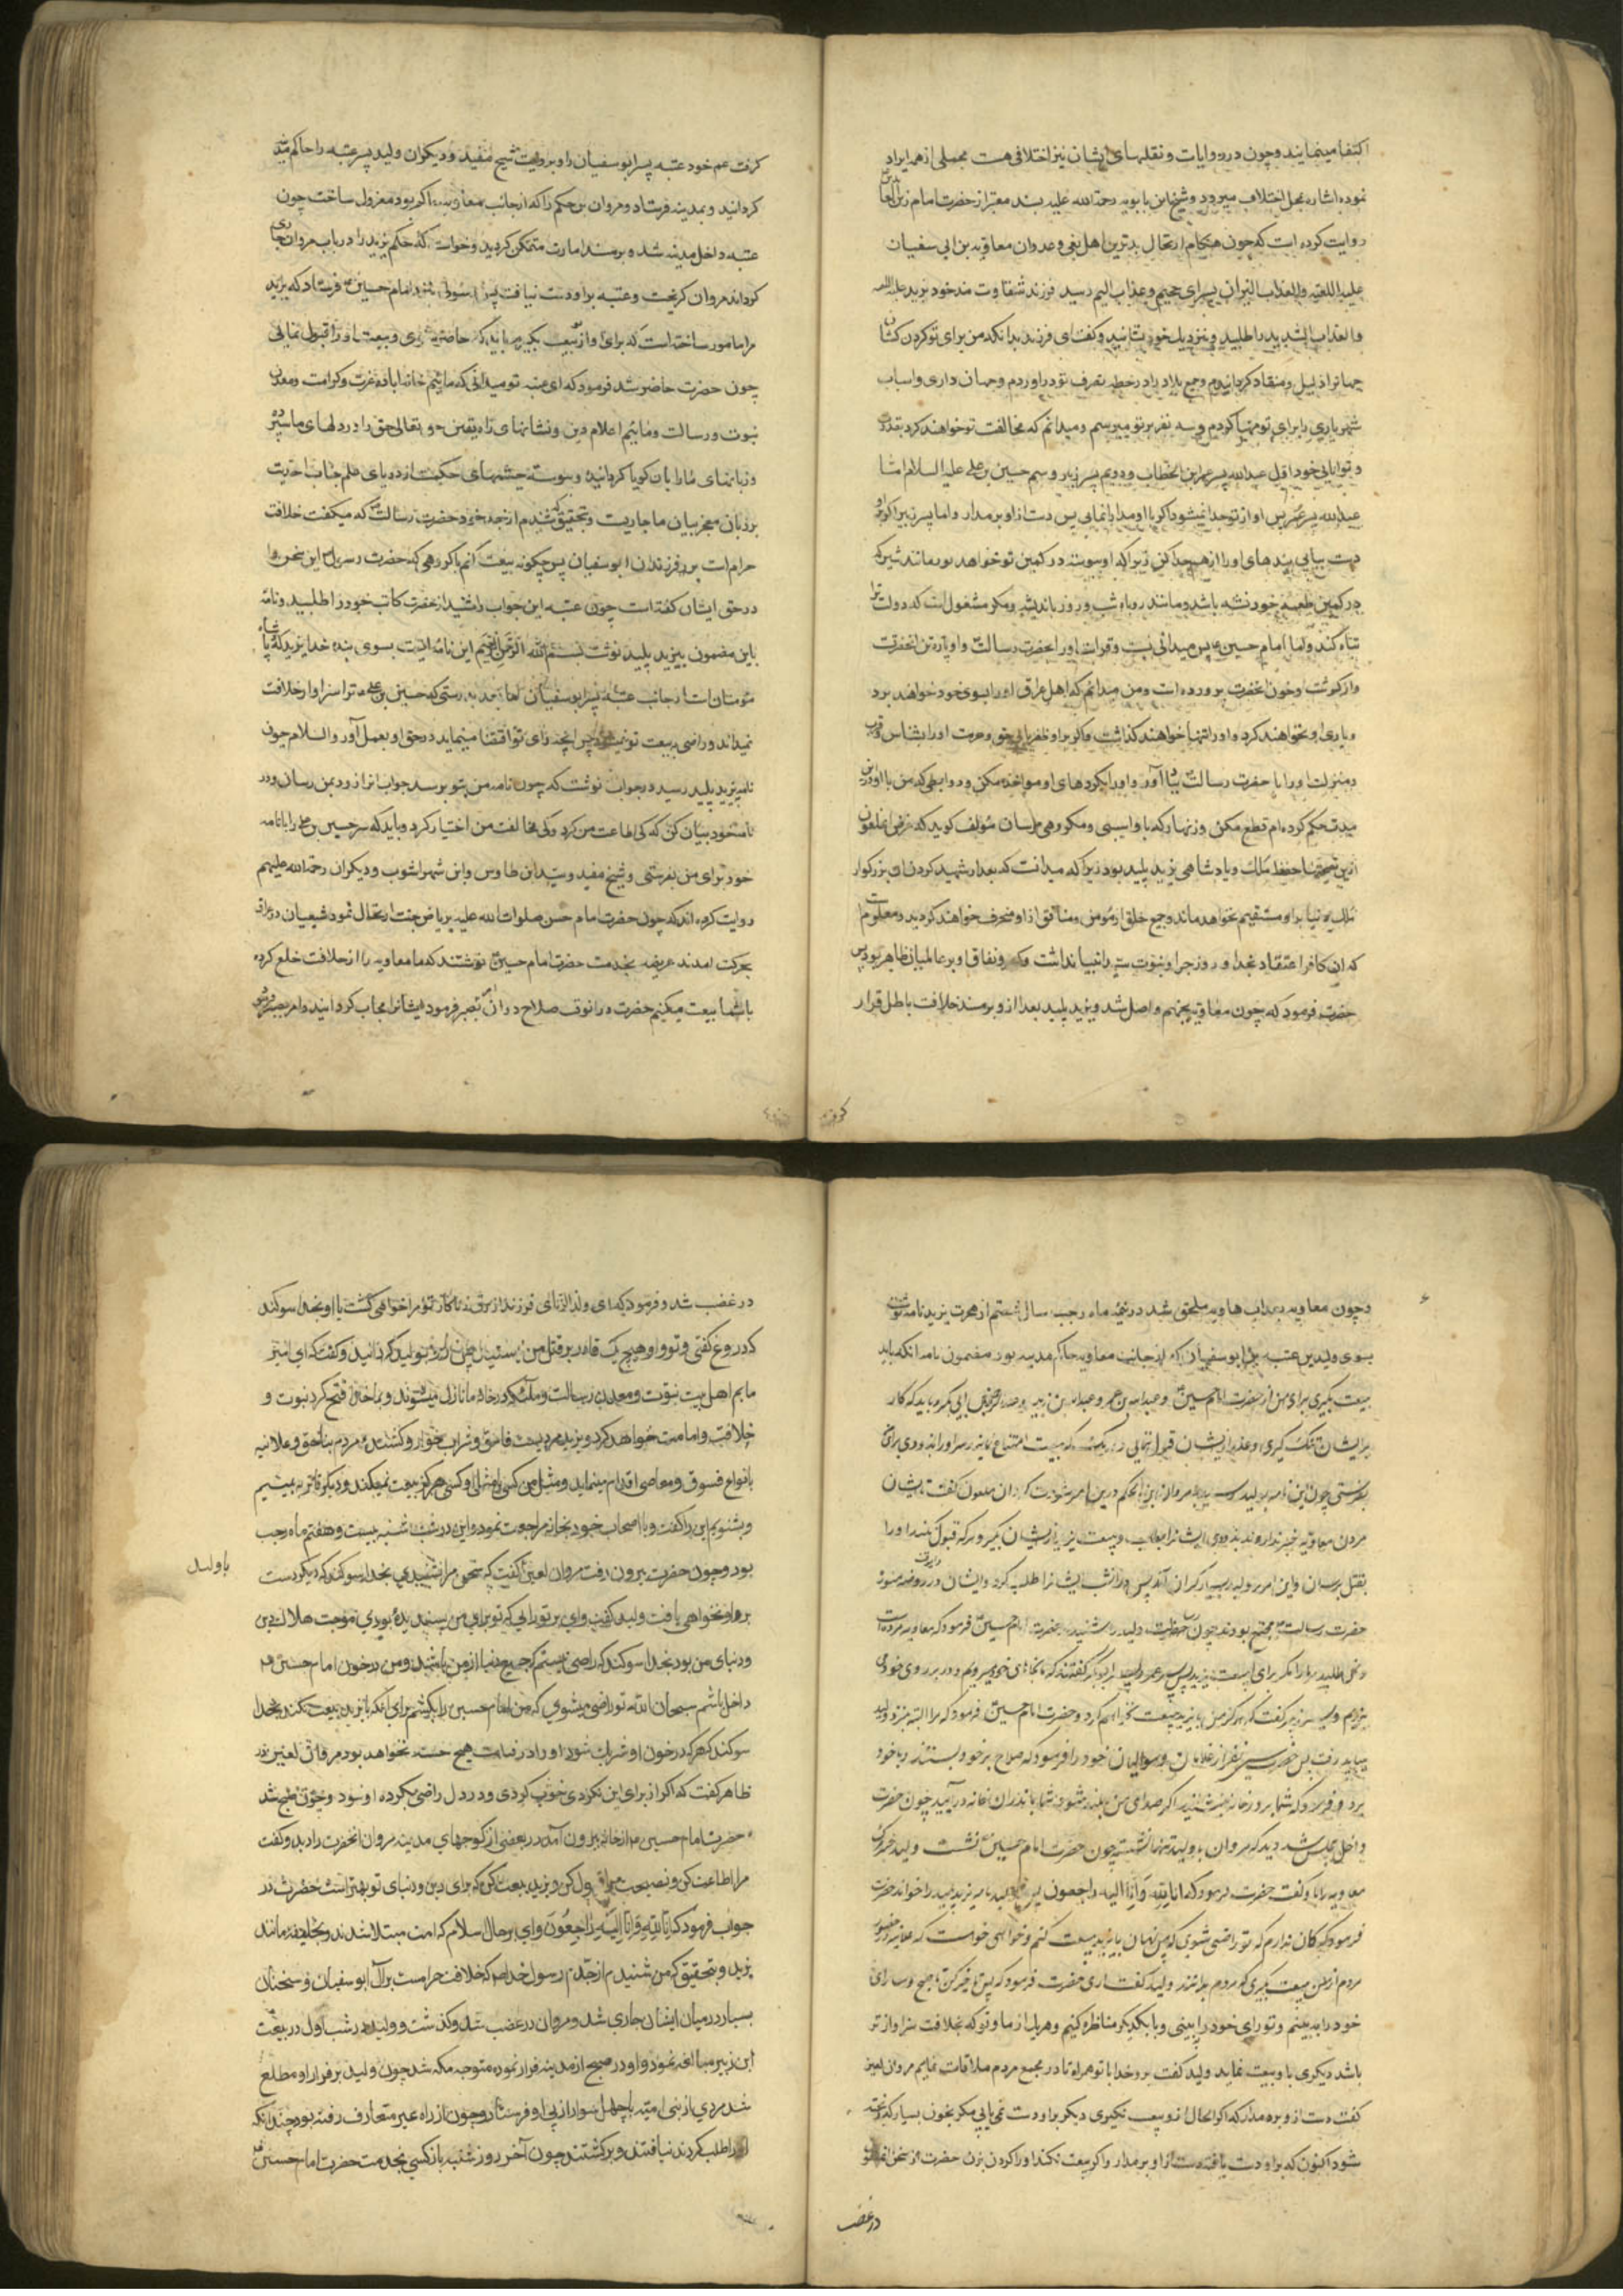 اکتفا مینمایند و چون در روایات و نقلهای ایشان نیز اختلافی هست مجملی از همه ایراد
نموده اشاره بمحل اختلاف میرود و شیخ ابن بابویه رحمة الله علیه بسند معتبر از حضرت امام زین العابدین
روایت کرده است که چون هنگام ارتحال بدترین اهل بغی و عدوان معاویه بن ابی سفیان
علیه اللعنه والعذاب النیران بسرای جحیم و عذاب الیم رسید فرزند شقاوت مند خود یزید علیه اللعنه
والعذاب الشدید را طلبید و بنزدیک خود نشانید و گفت ای فرزند بدانکه من برای تو گردن کشان
جهانرا ذلیل و منقاد گردانیدم و جمیع بلاد را در حطه تصرف تو در اوردم و جهان داری و اسباب
شهریاری را برای تو مهیا کردم و سه نفر بر تو میترسم و میدانم که مخالفت تو خواهند کرد بقدر
و توانایی خود اول عبدالله پسر عمر ابن الخطاب و دویم پسر زبیر و سیم حسین بن علی علیه السلام اما
عبدالله پسر عمر پس او از تو جدا نمیشود اگر با او مدارا نمایی پس دست از او بر مدار و اما پسر زبیر اگر بر او
دست بیابی بندهای او را از هم جدا کن زیرا که او پیوسته در کمین تو خواهد بود مانند شیر که
در کمین طعمه خود نشسته باشد و مانند روباه شب و روز باندیشه و مکر مشغول است که دولت ترا
تباه کند و اما امام حسین پس میدانی نسبت و قرابت او را بحضرت رسالت و او پاره تن انحضرت
و از گوشت و خون انحضرت پرورده است و من میدانم که اهل عراق او را بسوی خود خواهند برد
و یاری او نخواهند کرد و او را تنها خواهند گذاشت و اگر بر او ظفر یابی حق و حرمت او را بشناس و قرب
و منزلت او را با حضرت رسالت بیاد آور و او را بکردهای او مواخذه مکن و روابطی که من با او درین
مدت محکم کرده‌ام قطع مکن و زنهار که باو اسیبی و مکروهی مرسان مؤلف گوید که غرض ان ملعون
ازین نصیحتها حفظ ملک و پادشاهی یزید پلید بود زیرا که میدانست که بعد از شهید کردن ان بزرگوار
ملک دنیا بر او مستقیم نخواهد ماند و جمیع خلق از مومن و منافق از او منحرف خواهند گردید و معلومست
که ان کافر اعتقاد بخدا و روز جزا و نبوت سید انبیا نداشت و کفر و نفاق او بر عالمیان ظاهر بود پس
حضرت فرمود که چون معاویه بجهنم واصل شد و یزید پلید بعد از و بر مسند خلافت باطل قرار
گرفت
گرفت عم خود عتبه پسر ابوسفیان را و بروایت شیخ مفید و دیگران ولید پسر عتبه را حاکم مدینه
گردانید و بمدینه فرستاد و مروان بن حکم را که از جانب معاویه حاکم بود معزول ساخت چون
عتبه داخل مدینه شد و بر مسند امارت متمکن گردید و خواست که حکم یزید را در باب مروان جاری
گرداند مروان گریخت و عتبه بر او دست نیافت پس رسولی بنزد امام حسین فرستاد که یزید
مرا مامور ساخته است که برای او از تو بیعت بگیرم باید که حاضر شوی و بیعت او را قبول نمائی
چون حضرت حاضر شد فرمود که ای عتبه تو میدانی که مائیم خانه اباده عزت و کرامت و معدن
نبوت و رسالت و مائیم اعلام دین و نشانهای راه یقین حق تعالی حق را در دلهای ما سپرده
و زبانهای ما را بان گویا گردانیده و پیوسته چشمهای حکمت از دریای علم جناب احدیت
بر زبان معجز بیان ما جاریست و بتحقیق که شنیدم از جد خود حضرت رسالت که میگفت خلافت
حرام است بر فرزندان ابوسفیان پس چگونه بیعت کنم با گروهی که حضرت رسول این سخن را
در حق ایشان گفته است چون عتبه این جواب را شنید از حضرت کاتب خود را طلبید و نامه
باین مضمون بیزید پلید نوشت بسم الله الرحمن الرحیم این نامه ایست بسوی بنده خدا یزید که پادشاه
مؤمنان است از جانب عتبه پسر ابوسفیان اما بعد بدرستی که حسین بن علی ترا سزاوار خلافت
نمیداند و راضی به بیعت تو نمیشود پس انچه رای تو اقتضا مینماید در حق او بعمل آور والسلام چون
نامه بیزید پلید رسید در جواب نوشت که چون نامه من بتو برسد جواب انرا زود بمن رسان و در
نامه خود بیان کن که کی اطاعت من کرد و کی مخالفت من اختیار کرد و باید که سر حسین بن علی را با نامه
خود برای من بفرستی و شیخ مفید و سید ابن طاوس و ابن شهراشوب و دیگران رحمة الله علیهم
روایت کرده اند که چون حضرت امام حسن صلوات الله علیه بریاض جنت ارتحال نمود شیعیان در عراق
بحرکت امدند عریضه بخدمت حضرت امام حسین نوشتند که ما معاویه را از خلافت خلع کرده
با شما بیعت میکنیم حضرت در انوقت صلاح در ان ندید فرمود ایشانرا مجاب گردانید و امر بصبر فرمود
و چون معاویه بعذاب هاویه ملحق شد در نیمه ماه رجب سال شصتم از هجرت یزید نامه نوشت
بسوی ولید بن عتبه بن ابوسفیان که از جانب معاویه حاکم مدینه بود مضمون نامه انکه باید
بیعت بگیری برای من از حضرت امام حسین و عبدالله بن عمر و عبدالله بن زبیر و عبدالرحمن بن ابی بکر و باید که کار
بر ایشان تنگ گیری و عذر از ایشان قبول ننمائی و هر یک که از بیعت امتناع نماید سر او را بزودی برای من
بفرستی چون این نامه بولید رسید با مروان ابن الحکم درین امر مشورت کرد ان ملعون گفت تا ایشان
مردن معاویه خبر ندارند بزودی ایشانرا بطلب و بیعت یزید از ایشان بگیر و هر که قبول نکند او را
بقتل برسان و این امر بر ولید بسیار گران آمد پس در انشب ایشانرا طلب کرد و ایشان در روضه منوره
حضرت رسالت مجتمع بودند چون رسالت ولید را شنیدند حضرت امام حسین فرمود که معاویه مرده است
بیاید رفت پس حضرت سی نفر از غلامان و موالیان خود را فرمود که سلاح بر خود بستند و با خود
برد و فرمود که شما بر در خانه بنشینید اگر صدای من بلند شود شما باندران خانه در آیید چون حضرت
داخل مجلس شد دید که مروان با ولید تنها نشسته چون حضرت امام حسین نشست ولید خبر مرگ
معاویه را باو گفت حضرت فرمود که انا لله و انا الیه راجعون پس ولید نامه یزید پلید را خواند حضرت
فرمود که گمان ندارم که تو راضی شوی که من پنهان با یزید بیعت کنم و خواهی خواست که علانیه در حضور
مردم از من بیعت بگیری که مردم بدانند ولید گفت اری حضرت فرمود که پس تاخیر کن تا صبح و ما رای
خود را ببینیم و تو رای خود را ببینی و با یکدیگر مناظره کنیم و هر یک از ما و تو که بخلافت سزاوارتر
باشد دیگری با و بیعت نماید ولید گفت برو خدا با تو همراه تا در مجمع مردم ملاقات نمایم مروان لعین
گفت دست از و بر مدار که اگر الحال از و بیعت نگیری دیگر بر او دست نمی یابی مگر بخون بسیار که ریخته
شود اکنون که بر او دست یافته دست از او بر مدار و اگر بیعت نکند او را گردن بزن حضرت از سخن
در غضب
در غضب شد و فرمود که ای ولد الزنای فرزند زن زناکار تو مرا خواهی کشت یا او بخدا سوگند
که دروغ گفتی و تو و او هیچ یک قادر بر قتل من نیستید پس رو بولید گردانید و گفت که ای امیر
مایم اهل بیت نبوت و معدن رسالت و ملائکه در خانه ما نازل میشوند و بما خدا فتح کرد نبوت و
خلافت و امامت خواهد کرد و یزید مردیست فاسق و شراب خوار و کشنده مردم بناحق و علانیه
بانواع فسوق و معاصی اقدام مینماید و مثل من کسی با مثل او کسی هرگز بیعت نمیکند و دیگر تا ترا به بینیم
و بشنویم این را گفت و با اصحاب خود بخانه مراجعت نمود و این در شب شنبه بیست و هفتم ماه رجب
بود و چون حضرت بیرون رفت مروان لعین گفت که سخن مرا نشنیدی بخدا سوگند که دیگر دست
با ولید
بر او نخواهی یافت ولید گفت وای بر تو رایی که تو برای من پسندیده بودی موجب هلاک دین
و دنیای من بود بخدا سوگند که راضی نیستم که جمیع دنیا از من باشد و من در خون امام حسین
داخل باشم سبحان الله تو راضی میشوی که من امام حسین را بکشم برای انکه با یزید بیعت نکند بخدا
سوگند که هر که در خون او شریک شود او را در قیامت هیچ حسنه نخواهد بود مروان لعین در
ظاهر گفت که اگر از برای این نکردی خوب کردی و در دل راضی بکرده او نبود و چون صبح شد
حضرت امام حسین از خانه بیرون آمد در بعضی از کوچهای مدینه مروان انحضرت را دید و گفت
مرا اطاعت کن و نصیحت مرا قبول کن و یزید بیعت کن که برای دین و دنیای تو بهتر است حضرت در
جواب فرمود که انا لله و انا الیه راجعون وای بر حال اسلام که امت مبتلا شدند بخلیفه مانند
یزید و بتحقیق که من شنیدم از جدم رسول خدا که خلافت حرامست بر آل ابوسفیان و سخنان
بسیار در میان ایشان جاری شد و مروان در غضب شد و گذشت و ولید در شب اول در بیعت
ابن زبیر مبالغه نمود و او در صبح از مدینه فرار نموده متوجه مکه شد چون ولید بر فرار او مطلع
شد مردی از بنی امیه با چهل سوار از پی او فرستاد و چون از راه غیر متعارف رفته بود چندانکه
او را طلب کردند نیافتند و برگشتند چون آخر روز شنبه باز کسی بخدمت حضرت امام حسین